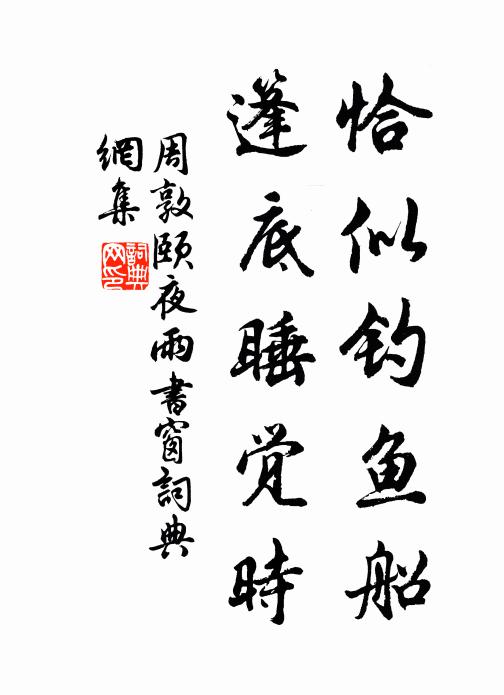 恰似钓鱼船
篷底睡觉时
周敦颐夜雨書窗詞典
網集
詞典
网印